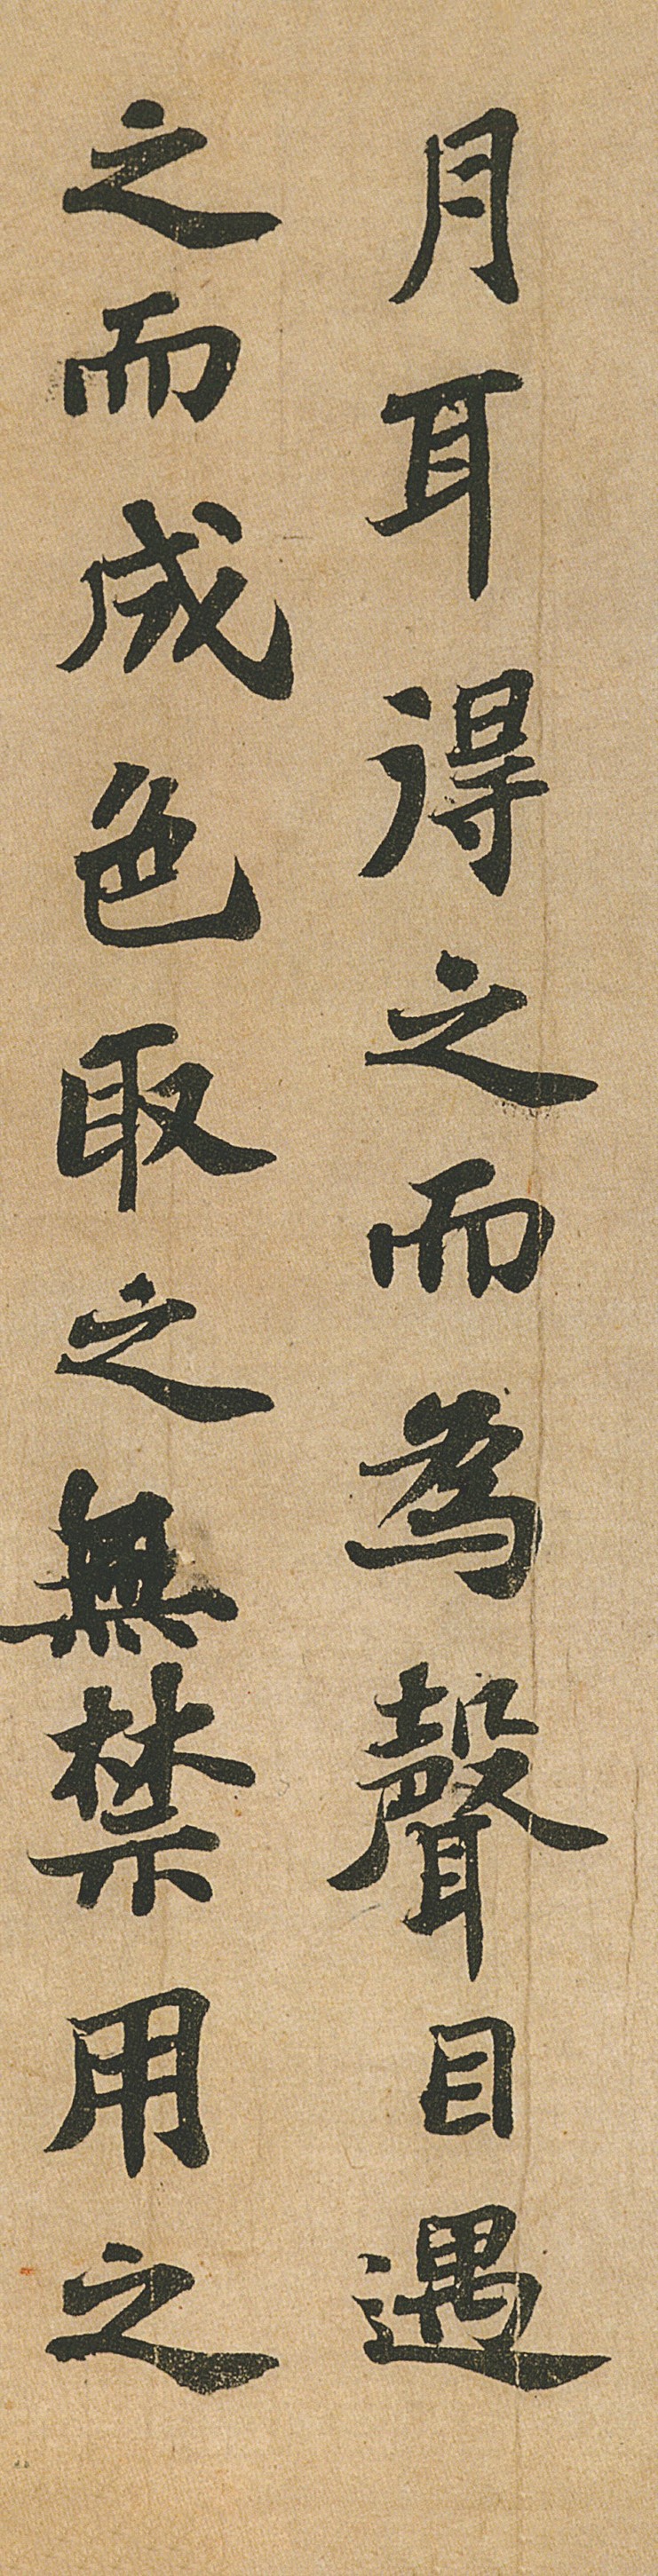 月耳得之而為聲目遇
之而成色取之無禁用之